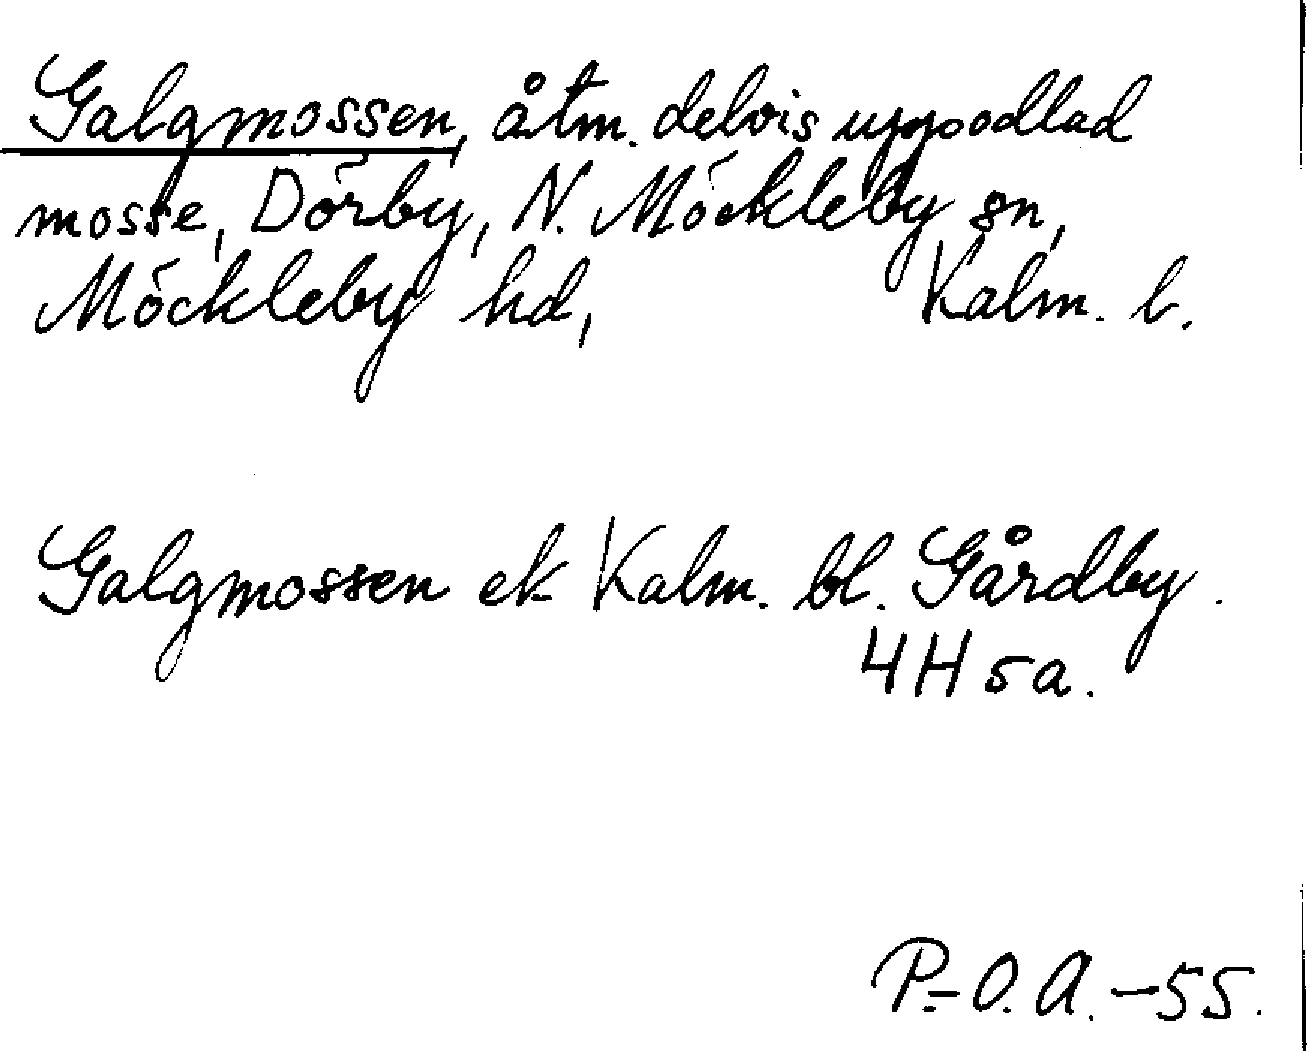 Galgmossen, åtm. delvis uppodlad
mosse, Dörby, N. Möckleby sn,
Möckleby hd, Kalm. l.
Galgmossen ek Kalm. bl. Gårdby.
4H 5a.
P.-O. A. -55.